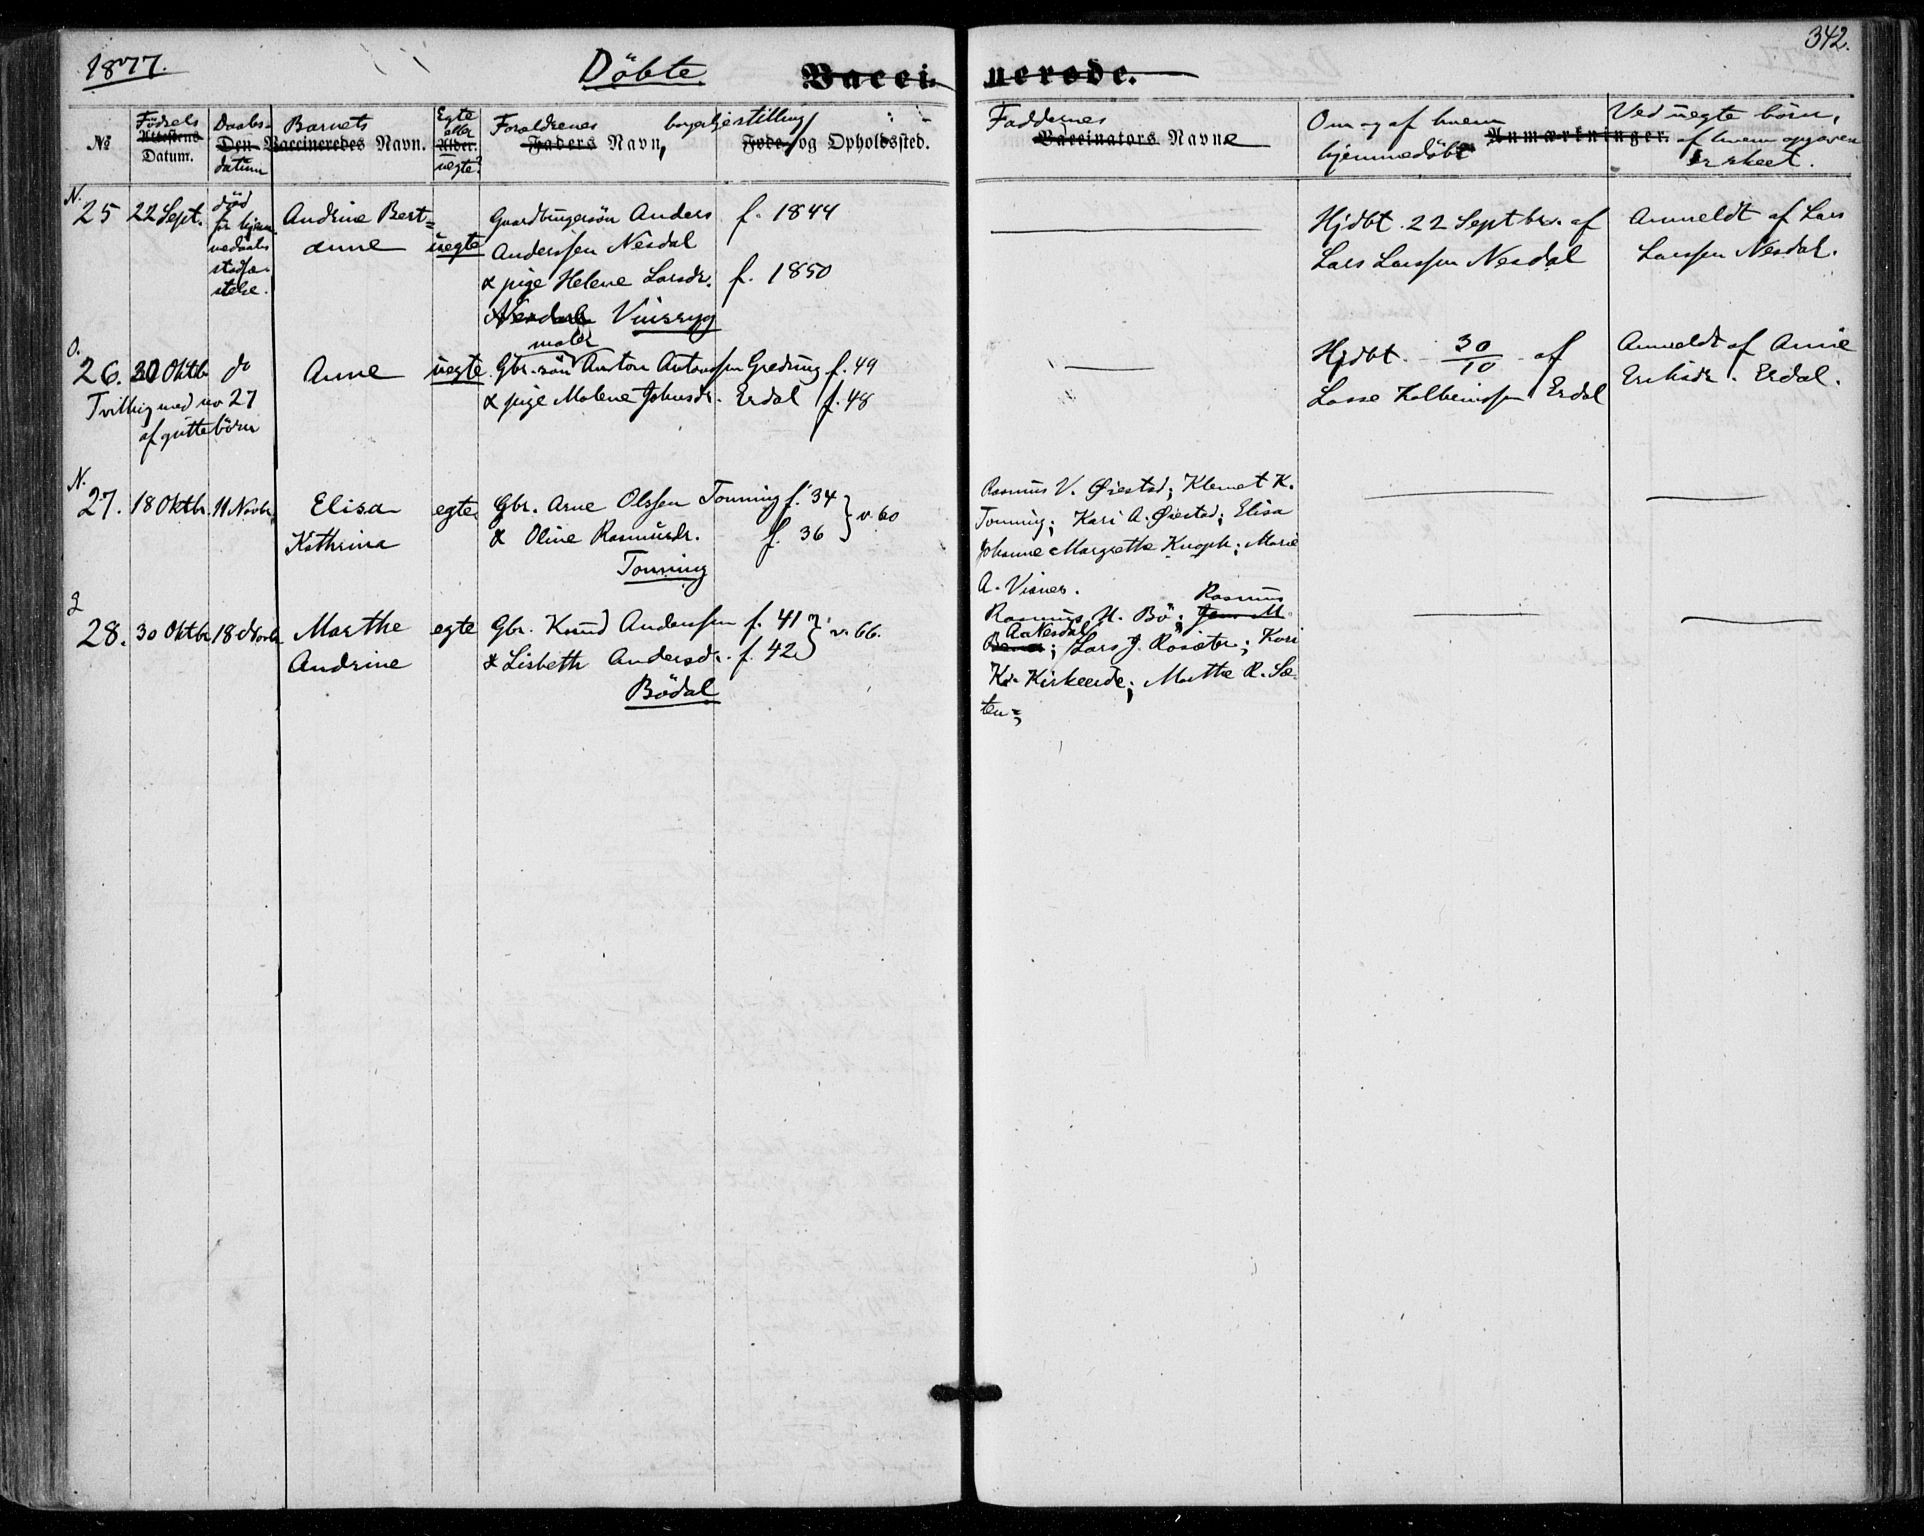 1877.
Döbte
Vaccinerede.
342.
№
Fødsels
Attestens
Datum.
Daabs-
Den
datum
Barnets
Vaccineredes Navn.
Egte
eller
Alder.
uegte?
Forældrenes
Faders Navn,
borgerlje stilling
Føde- og Opholdssted.
Faddernes
Vaccinators Navne
Om og af hvem
hjemmedöbt
Anmærkninger.
Ved uegte börn,
af hvem opgaven
er skeet.
N.
25
22 Sept.
död
før hjem-
medaabs
stadfæ-
stelse.
Andrine Bert-
anne
uegte
Gaardbrugersön Anders
Anderssen Nesdal
f. 1844
& pige Helene Larsdr.
f. 1850
Nesdal Viusryg
Hjdbt. 22 Septbr. af
Lars Larssen Nesdal
Anmeldt af Lars
Larssen Nesdal.
O.
26.
30 Oktb
do
Anne
uegte
maler
Gbr. sön Anton Antonssen Gredung f. 49
& pige Malene Johnsdr. Erdal f. 48
Tvilling med no 27
af guttebörn
Hjdbt. 30/10 af
Lasse Kolbeinssen Erdal
Anmeldt af Anne
Eriksdr. Erdal.
N.
27.
18 Oktbr.
11 Novbr.
Elisa
Kathrina
egte
Gbr. Arne Olssen Tonning f. 34
& Oline Rasmusdr. f. 36
v. 60
Tonning
Rasmus V. Øiestad; Klemet K.
Tonning; Kari A. Øiestad; Elisa
Johanne Margrethe Knoph; Marie
A. Visnes.
28.
30 Oktbr
18 Novbr
Marthe
Andrine
egte
Gbr. Knud Anderssen f. 41
& Lisbeth Andersdr. f. 42
v. 66.
Bödal
Rasmus
Rasmus M. Bö; Jens M.
A. Nesdal
; Lars J. Rösæter; Kari
K. Kirkeeide; Marthe R. Sæ-
ten;